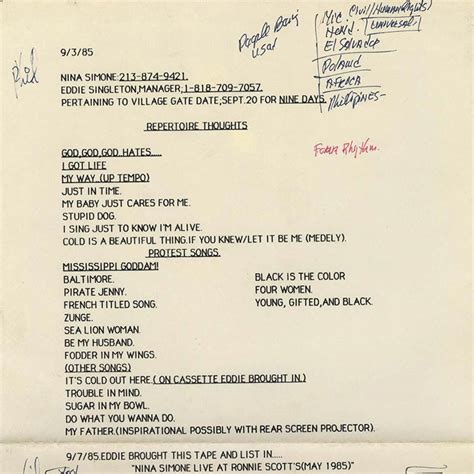 9/3/85
People Being
Used
Civil/Human Rights
Universal
El Salvador
Poland
Africa
Philipines-
NINA SIMONE:213-874-9421.
EDDIE SINGLETON,MANAGER;1-818-709-7057.
PERTAINING TO VILLAGE GATE DATE;SEPT.20 FOR NINE DAYS.
REPERTOIRE THOUGHTS
Rhythm.
GOD,GOD,GOD.HATES.....
I GOT LIFE
MY WAY.(UP TEMPO)
JUST IN TIME.
MY BABY JUST CARES FOR ME.
STUPID DOG.
I SING JUST TO KNOW I'M ALIVE.
COLD IS A BEAUTIFUL THING.IF YOU KNEW/LET IT BE ME (MEDELY).
PROTEST SONGS.
MISSISSIPPI GODDAM!
BALTIMORE. BLACK IS THE COLOR
PIRATE JENNY. FOUR WOMEN.
FRENCH TITLED SONG. YOUNG, GIFTED,AND BLACK.
ZUNGE.
SEA LION WOMAN.
BE MY HUSBAND.
FODDER IN MY WINGS.
(OTHER SONGS)
IT'S COLD OUT HERE.( ON CASSETTE EDDIE BROUGHT IN.)
TROUBLE IN MIND.
SUGAR IN MY BOWL.
DO WHAT YOU WANNA DO.
MY FATHER.(INSPIRATIONAL POSSIBLY WITH REAR SCREEN PROJECTOR).
9/7/85.EDDIE BROUGHT THIS TAPE AND LIST IN.....
"NINA SIMONE LIVE AT RONNIE SCOTT'S(MAY 1985)"